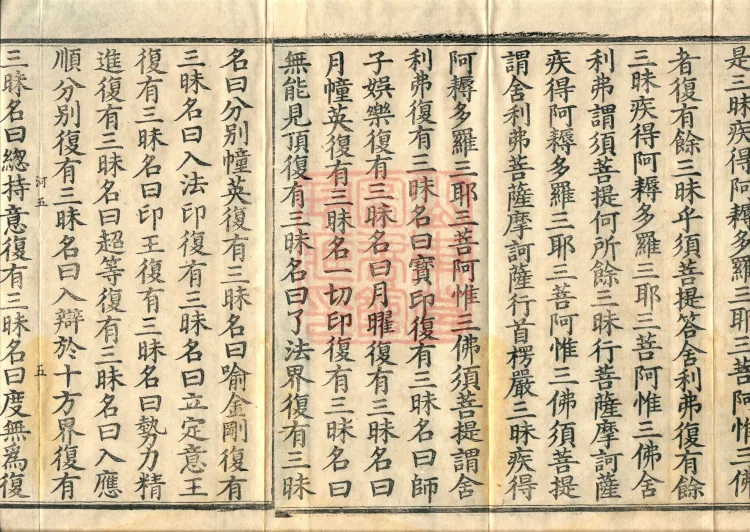 是三昧疾得阿耨多羅三耶三菩阿惟三佛
者復有餘三昧乎須菩提答舍利弗復有餘
三昧疾得阿耨多羅三耶三菩阿惟三佛舍
利弗謂須菩提何所餘三昧行菩薩摩訶薩
疾得阿耨多羅三耶三菩阿惟三佛須菩提
謂舍利弗菩薩摩訶薩行首楞嚴三昧疾得
阿耨多羅三耶三菩阿惟三佛須菩提謂舍
利弗復有三昧名曰寶印復有三昧名曰師
子娛樂復有三昧名曰月曜復有三昧名曰
月幢英復有三昧名一切印復有三昧名曰
無能見頂復有三昧名曰了法界復有三昧
名曰分别幢英復有三昧名曰喻金剛復有
三昧名曰入法印復有三昧名曰立定意王
復有三昧名曰印王復有三昧名曰勢力精
進復有三昧名曰超等復有三昧名曰入應
順分别復有三昧名曰入辯於十方界復有
河五 五
三昧名曰總持意復有三昧名曰度無爲復